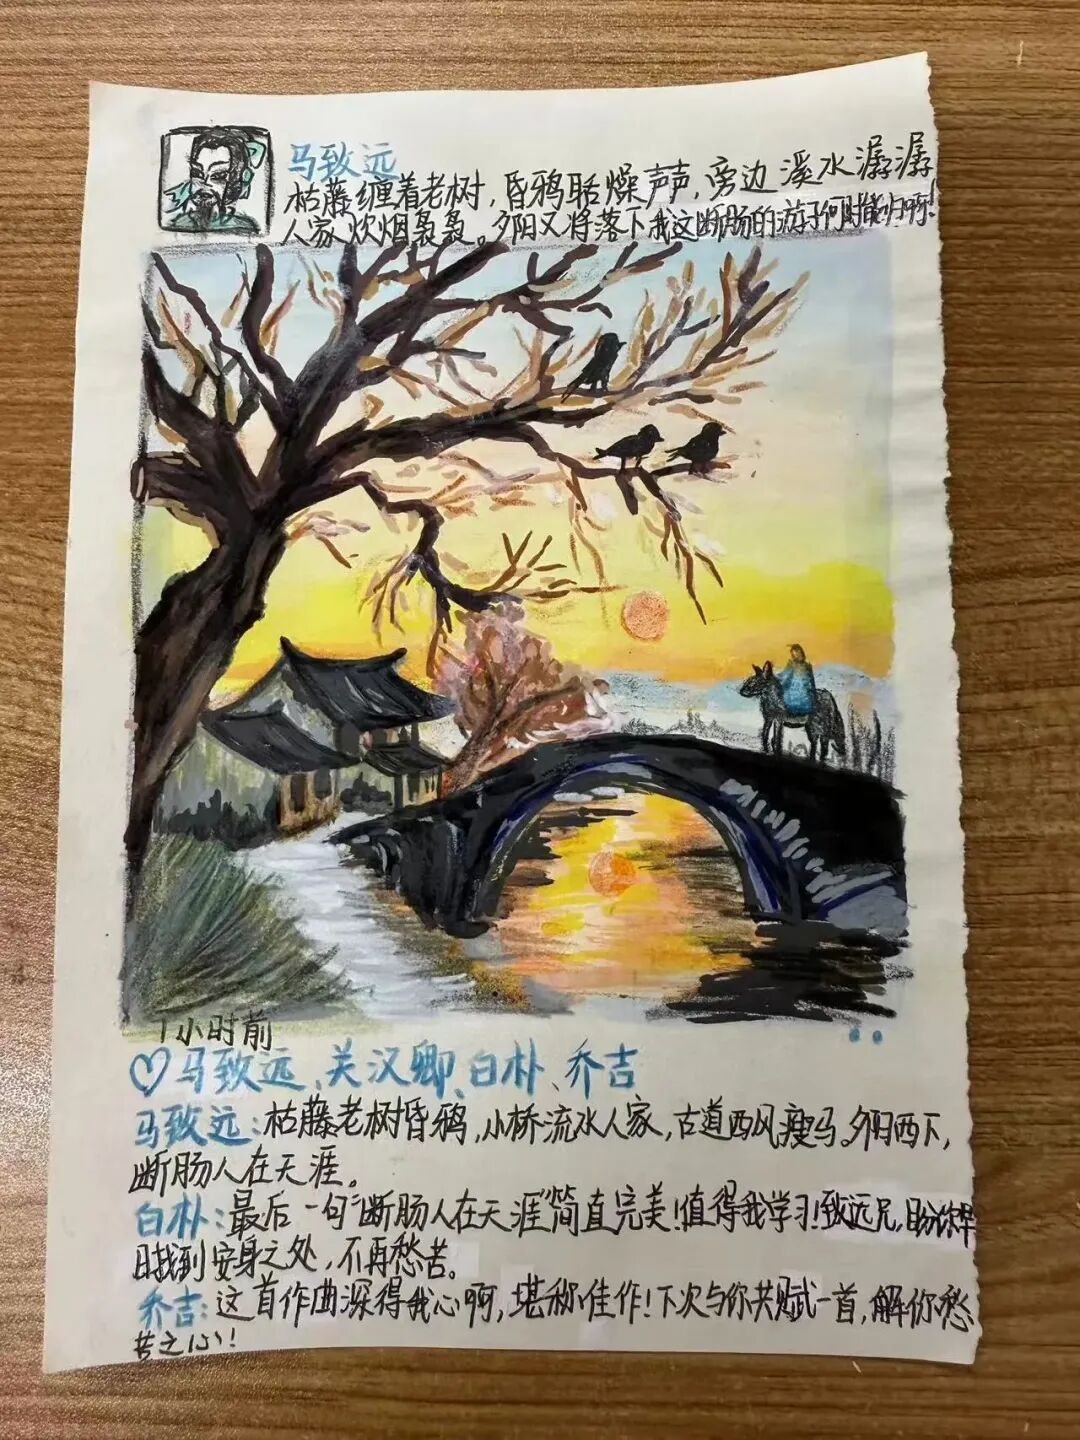 马致远
枯藤缠着老树，昏鸦聒燥声声，旁边溪水潺潺
人家炊烟袅袅。夕阳又将落下我这断肠的游子何时能归啊！
1小时前
马致远、关汉卿、白朴、乔吉
马致远：枯藤老树昏鸦，小桥流水人家，古道西风瘦马。夕阳西下，
断肠人在天涯。
白朴：最后一句“断肠人在天涯”简直完美！值得我学习！致远兄，盼你早
日找到安身之处，不再愁苦。
乔吉：这首作曲深得我心啊，堪称佳作！下次与你共赋一首，解你愁
苦之心！